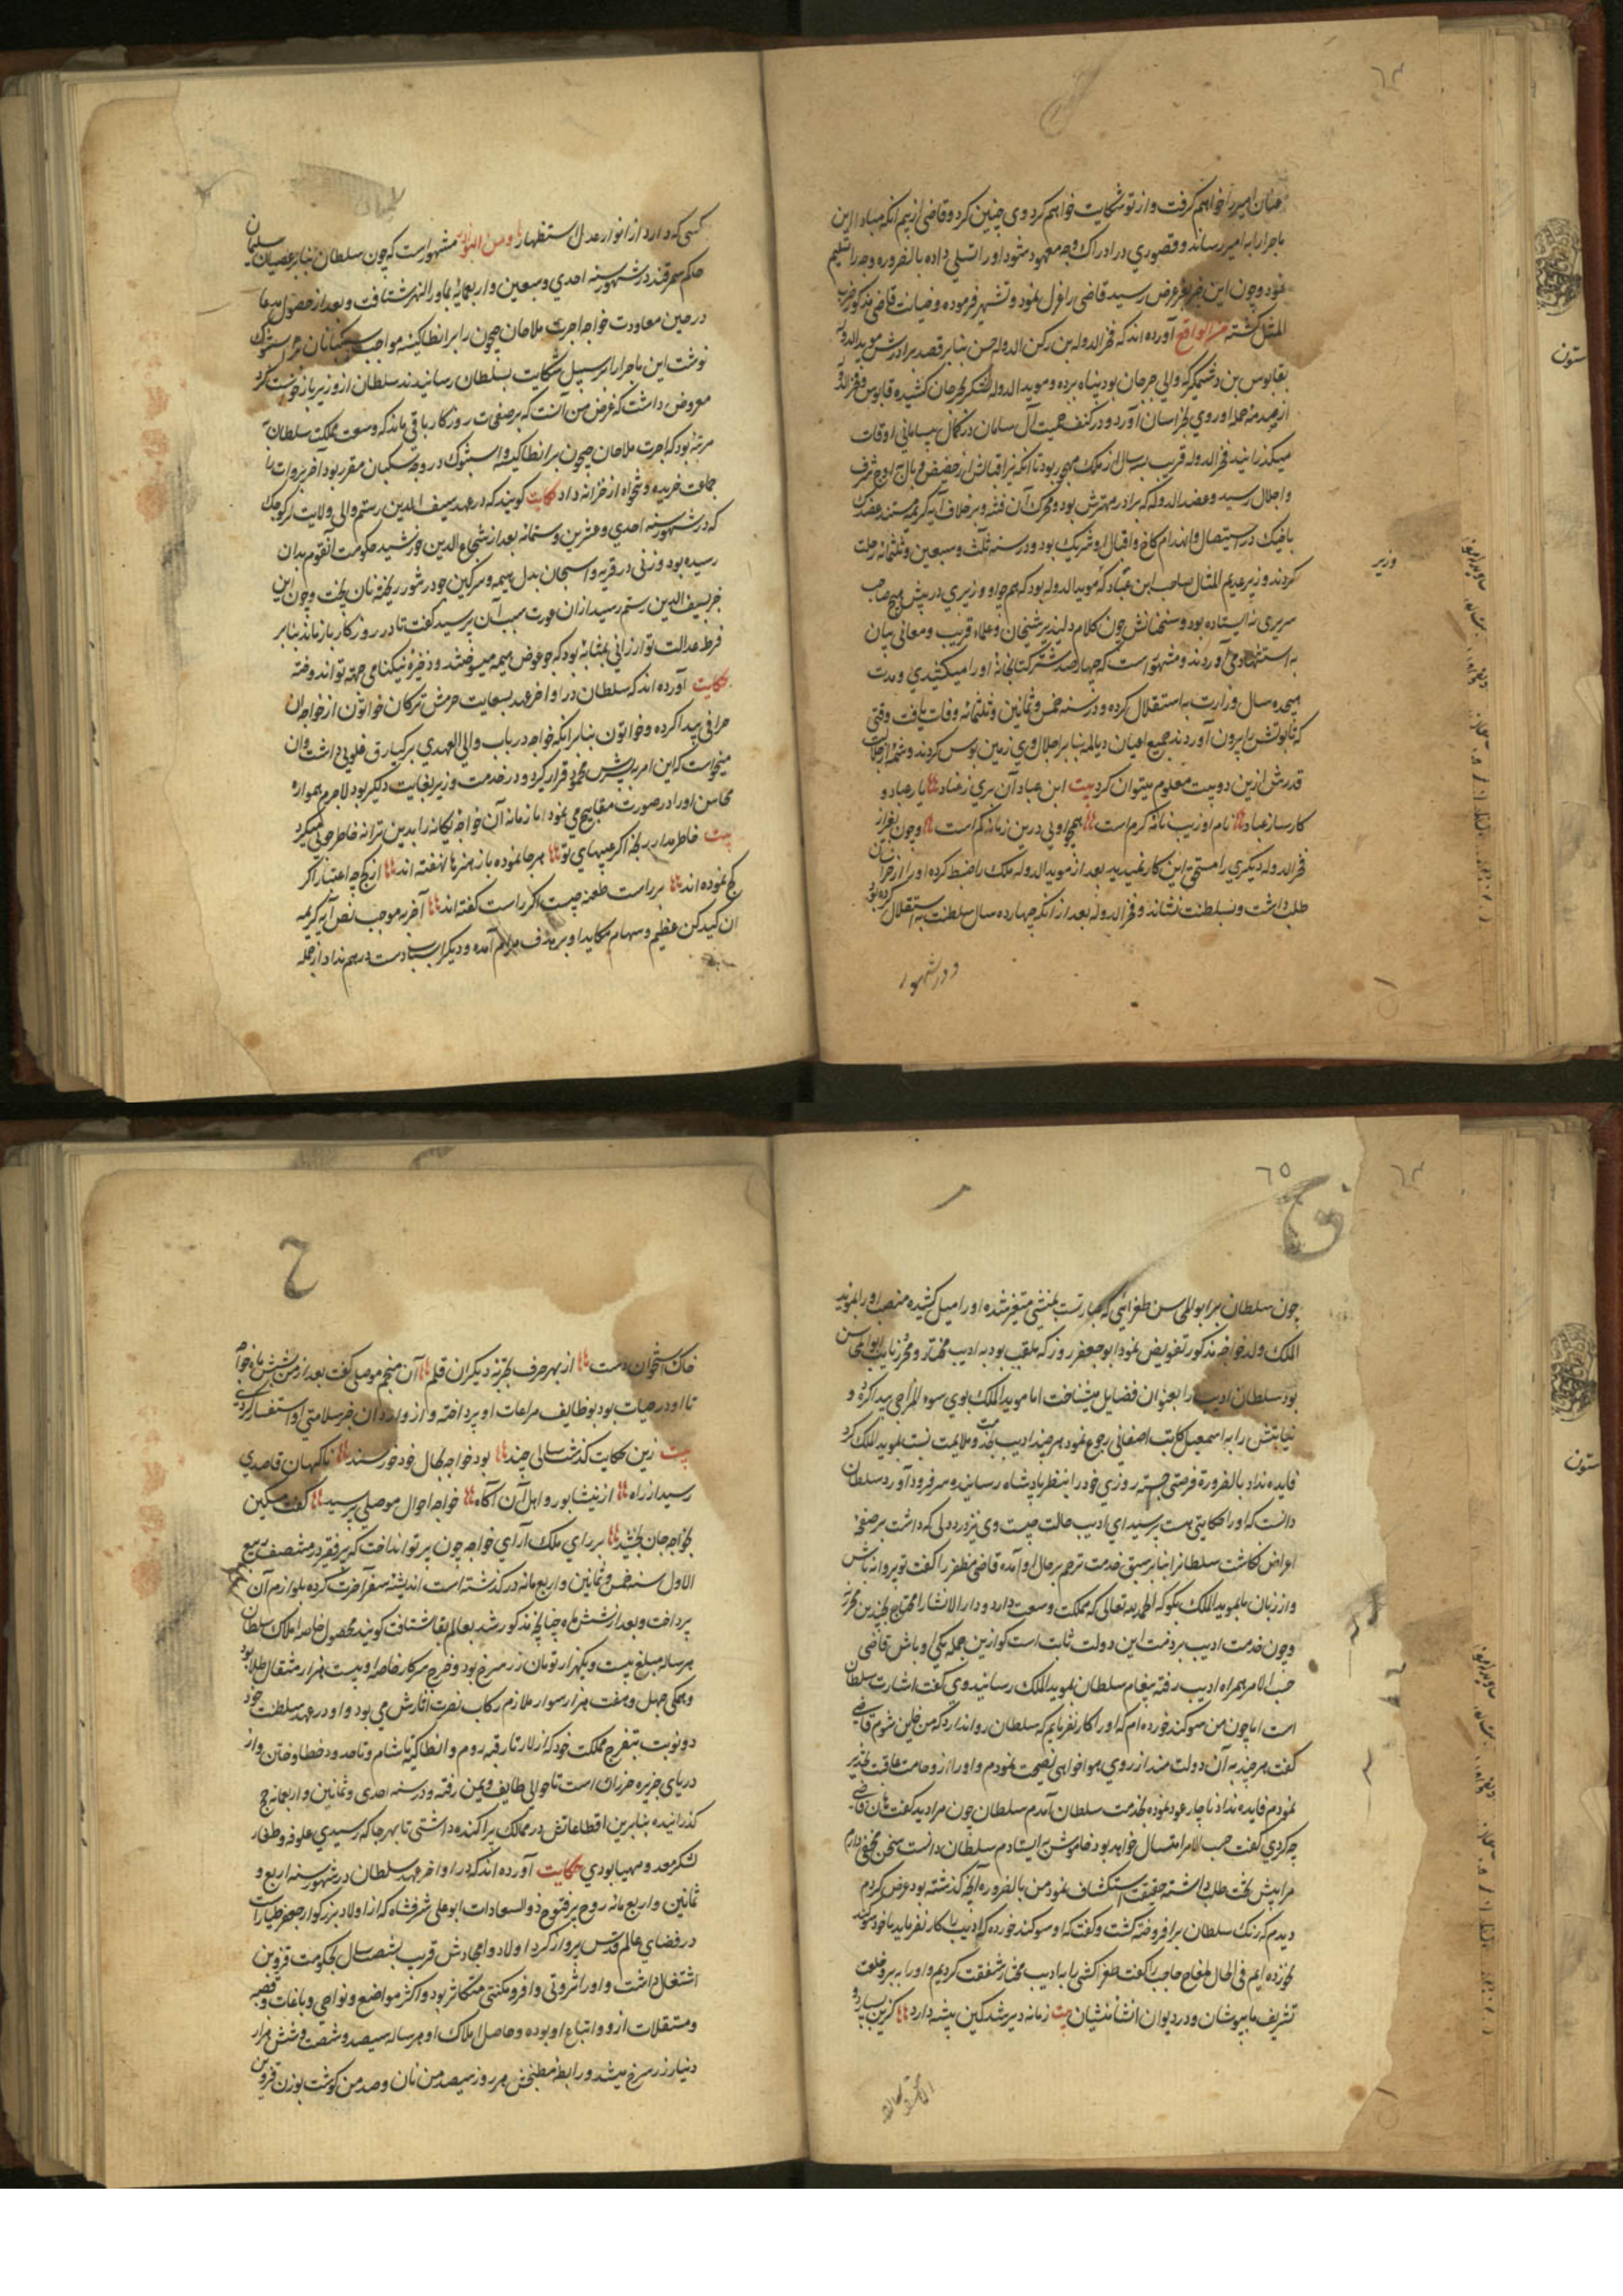 ٦٣
عنان امیر را خواهم گرفت و از تو شکایت خواهم کرد وی چنین کرد و قاضی از بیم آنکه مبادا این
ماجرا را به امیر رساند و قصوری در ادراک وجه معهود شود او را تسلی داده بالضروره وجه را تسلیم
نمود و چون این خبر بعرض رسید قاضی را عزل نمود و تشهیر فرموده و خیانت قاضی مذکور ضرب
المثل گشته من الوقایع آورده اند که فخر الدوله بن رکن الدوله حسن بنابر قصد برادرش موید الدوله
بقابوس بن وشمگیر که والی جرجان بود پناه برده و موید الدوله لشکر بجرجان کشیده قابوس و فخر الدوله
از صدمه حمله او روی بخراسان آورد و در کنف حمیت آل سامان در کمال بیسامانی اوقات
میگذرانید فخر الدوله قریب سه سال از ملک مهجور بود تا آنکه نیر اقبالش از حضیض وبال باوج شرف
و اجلال رسید و عضد الدوله که برادر مهترش بود و محرک آن فتنه و بر خلاف آیه کریمه سنشد عضدک
باخیک در استیصال و انهدام کاخ و اقبال او شریک بود و در سنه ثلث و سبعین و ثلثمائه رحلت
کردند وزیر عدیم المثال صاحب ابن عباد که موید الدوله بود که هم چو او وزیری در پیش هیچ صاحب
وزیر
سریری نه ایستاده بود و سخنانش چون کلام دلپذیر سخنان و علماء قریب و معانی بیان
به استشهاد می آوردند و مشهور است که چهار صد شتر کتابخانه او را میکشیدی و مدت
هیجده سال وزارت به استقلال کرده و در سنه خمس و ثمانین و ثلثمائه وفات یافت وقتی
که تابوتش را بیرون آوردند جمیع اعیان دیالمه بنابر اجلال وی زمین بوس کردند و شمهٔ از جلالت
قدرش ازین دو بیت معلوم میتوان کرد بیت ابن عباد آن بری ز عناد یار عباد و
کارساز عباد نام او زیب نامه کرم است همچو اویی درین زمانه کم است و چون بغیر از
فخر الدوله دیگری را مستحق این کار نمیدید بعد از موید الدوله ملک را ضبط کرده او را از خراسان
طلب داشت و بسلطنت نشاند و فخر الدوله بعد از آنکه چهارده سال سلطنت به استقلال کرده بود
و در شهور
ستون
کسی که دارد از انوار عدل استظهار و من النوادر مشهور است که چون سلطان بنابر عصیان سلیمان
حاکم سمرقند در شهور سنه احدی و سبعین و اربعمائه بماوراء النهر شتافت و بعد از حصول مدعا
در حین معاودت خواجه اجرت ملاحان جیحون را بر انطاکیه مواجب سکبانان بر استنبول
نوشت این ماجرا را بر سبیل شکایت بسلطان رسانیدند سلطان از وزیر بازخواست کرد
معروض داشت که غرض من آنست که بر صفحات روزگار باقی ماند که وسعت مملکت سلطان
مرتبهٔ بود که اجرت ملاحان جیحون بر انطاکیه و استنبول در وجه سکبان مقرر بود آخر بروات را
جماعت خریده و تنخواه از خزانه داد حکایت گویند که در عهد سیف الدین رستم والی ولایت لر کوچک
که در شهور سنه احدی و عشرین و ستمائه بعد از شجاع الدین خورشید حکومت آن قوم بدان
رسیده بود و زنی در قریه واسجان بدل هیمه و سرکین جو در تنور ریخته نان پخت و چون این
خبر بسیف الدین رستم رسید از آن عورت سبب آن پرسید گفت تا در روزگار باز ماند بنابر
فرط عدالت تو ارزانی بمثابهٔ بود که جو عوض هیمه میسوختند و ذخیرهٔ نیکنامی جهته تو اندوخته
حکایت آورده اند که سلطان در اواخر عهد بسعایت حرمش ترکان خواتون از خواجه انحرافی
پیدا کرده و خواتون بنابر آنکه خواجه در باب والی العهدی برکیارق غلویی داشت و آن
میخواست که این امر به پسرش محمود قرار گیرد و در خدمت وزیر بغایت دلگیر بود لاجرم همواره
محاسن او را در صورت مقابیح می نمود اما زمانه آن خواجه یگانه را بدین ترانه خاطر جوئی میکرد
بیت خاطر مدار رنجه اگر عیبهای تو هر جا نموده باز هنرها نهفته اند از کج چه اعتبار اگر
کج نموده اند بر راست طعنه چیست اگر راست گفته اند آخر به موجب نص آیه کریمه
ان کیدکن عظیم و سهام مکاید او بر هدف مرام آمده و دیگر اسباب دست بهم نداد از جمله
٦٥
چون سلطان بر ابو المحاسن طغرایی که عبارتست بمنشی متغیر شده او را میل کشیده منصب او را بموید
الملک ولد خواجه مذکور تفویض نمود ابو جعفر زوزنی که ملقب بود به ادیب مختار و محرر نایب ابو المحاسن
بود سلطان ادیب را بعنوان فضایل میشناخت اما موید الملک بوی سوء المزاجی پیدا کرده و
نیابتش را به اسمعیل کاتب اصفهانی رجوع نمود هر چند ادیب خدمت و ملایمت نسبت بموید الملک کرد
فایده نداد بالضرورة فرصتی جسته روزی خود را بنظر پادشاه رسانید و سر فرود آورد سلطان
دانست که او را حکایتی هست پرسید ای ادیب حالت چیست وی نیز درد دلی که داشت بر صفحه
اعراض نگاشت سلطان را بنابر سبق خدمت ترحم بر حال او آمده قاضی مظفر را گفت تو پروانه باش
و از زبان ما بموید الملک بگو که الحمد لله تعالی که مملکت وسعت دارد و دار الانشا را محتاج بچندین محرر
و چون خدمت ادیب بر ذمت این دولت ثابت است گو ازین جمله یکی او باش قاضی
حسب الامر همراه ادیب رفته پیغام سلطان بموید الملک رسانید وی گفت اشارت سلطان
است اما چون من سوگند خورده ام که او را کار نفرمایم که سلطان روا ندارد که من خاین شوم قاضی
گفت هر چند به آن دولت مند از روی هواخواهی نصیحت نمودم و او را از وخامت عاقبت تحذیر
نمودم فایده نداد ناچار عود نموده بخدمت سلطان آمدم سلطان چون مرا دید گفت هان قاضی
چه کردی گفت حسب الامر امتثال خواهد بود خاموش بایستادم سلطان دانست سخن مخفی دارم
مرا پیش تخت طلب داشته حقیقت استکشاف نمود من بالضروره آنچه گذشته بود عرض کردم
دیدم که رنگ سلطان برافروخته گشت و گفت که او سوگند خورده که ادیب را کار نفرماید ما خود سوگند
نخورده ایم فی الحال طغاج حاجب را گفت طغراکشی را با ادیب مختار شفقت کردیم او را به بر و خلعت
تشریف ما بپوشان و در دیوان انشا بنشان بیت زمانه دیر شد کین پیشه دارد
ستون
خاک استخوان دست از بهر حرف تجربه دیگران قلم آن منجم موصلی گفت بعد از من شش ماه خواجه
تا او در حیات بود بوظایف مراعات او پرداخته و از واردان خبر سلامتی او استفسار کردی
بیت زین حکایت گذشت سالی چند بود خواجه بحال خود خورسند ناگهان قاصدی
رسید از راه از نیشابور و اهل آن آگاه خواجه احوال موصلی پرسید گفت مسکین
بخواجه جان بخشید بر رای ملک آرای خواجه چون پرتو انداخت که پیر فقیر در منتصف ربیع
الاول سنه خمس و ثمانین و اربع مائه درگذشته است اندیشه سفر آخرت کرده بلوازم آن
پرداخت و بعد از شش ماه چنانچه مذکور شد بعالم بقا شتافت گویند محصول خاصه املاک سلطان
هر ساله مبلغ بیست و یکهزار تومان زر سرخ بود و خرج سرکار خاصه او بیست هزار مثقال طلا بود
و همگی چهل و هفت هزار سوار ملازم رکاب نصرت آثارش می بود و او در عهد سلطنت خود
دو نوبت بتفرج مملکت خود که از لار تا رقه روم و انطاکیه تا شام و تا حدود خطا و ختن و از
دریای جزیره خزران است تا حوالی طایف و یمن رفته و در سنه احدی و ثمانین و اربعمائه حج
گذرانیده بنابرین اقطاعاتش در ممالک پراکنده داشتی تا بهر جا که رسیدی علوفه و طغار
لشکر معد و مهیا بودی حکایت آورده اند که در اواخر عهد سلطان در شهور سنه اربع و
ثمانین و اربع مائه روح پر فتوح ذو السعادات ابو علی شرفشاه که از اولاد بزرگوار جعفر طیار است
در فضای عالم قدس پرواز کرد اولاد و امجادش قریب شصت سال بحکومت قزوین
اشتغال داشت و او را ثروتی وافر و مکنتی متکاثر بود و اکثر مواضع و نواحی و باغات قصبه
و مستقلات از و و اتباع او بوده و حاصل املاک او هر ساله سیصد و شصت و شش هزار
دینار زر سرخ میشد و رابطه مطبخش هر روز سیصد من نان و صد من گوشت بوزن قزوین